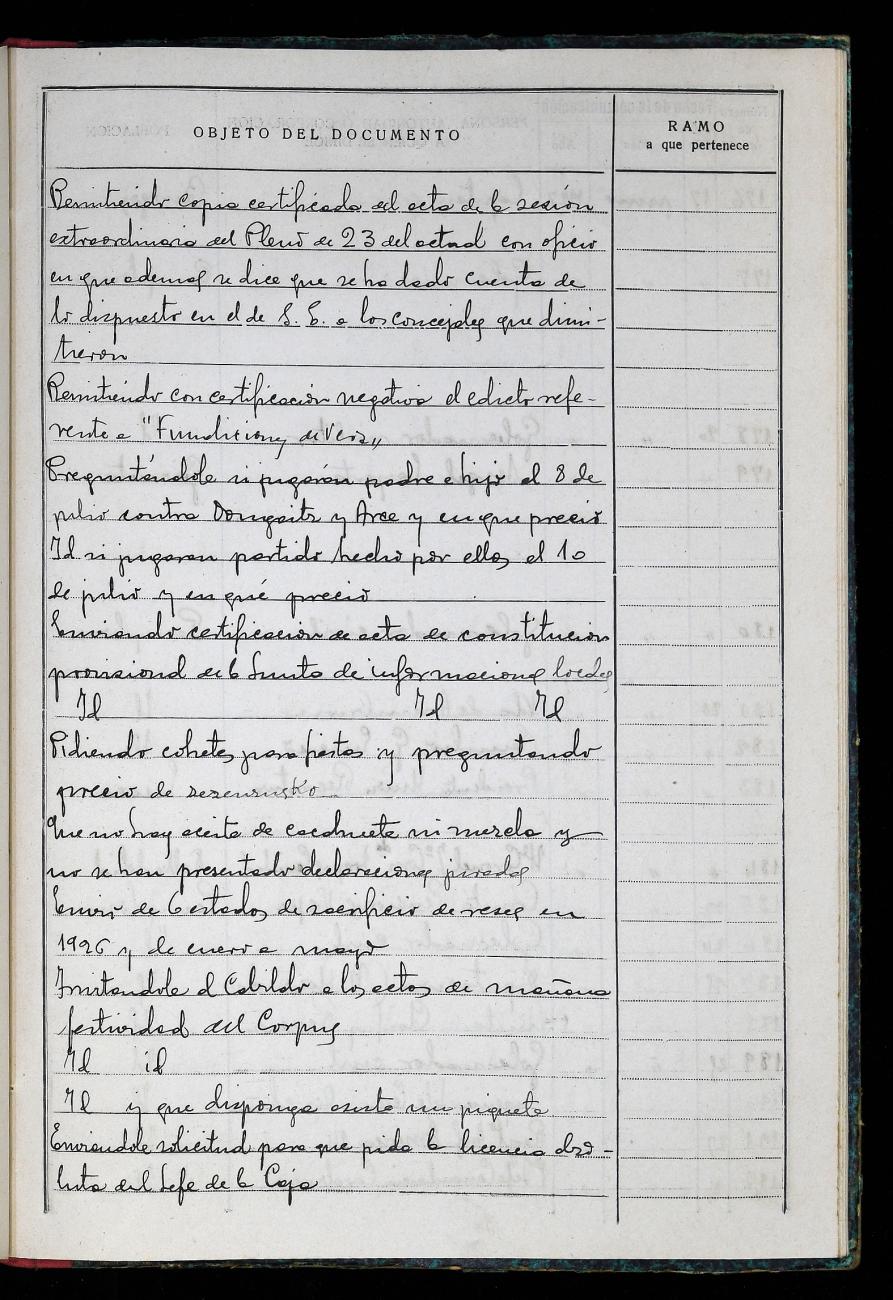 OBJETO DEL DOCUMENTO
RAMO
a que pertenece
Remitiendo copia certificada del acta de la sesión
extraordinaria del Pleno de 23 del actual con oficio
en que ademas se dice que se ha dado cuenta de
lo dispuesto en el de S. E. a los concejales que dimi-
tieron
Remitiendo con certificación negativa el edicto refe-
rente a "Fundiciones de Vera"
Preguntándole si jugarán padre e hijo el 8 de
julio contra Dongaitz y Arce y en que precio
Id si jugaran partido hecho por ellos el 10
de julio y en qué precio
Enviando certificacion de acta de constitucion
provisional de la Junta de informaciones locales
Id Id Id
Pidiendo cohetes para fiestas y preguntando
precio de zezenzusko
Que no hay aceite de cacahuete ni mezcla y
no se han presentado declaraciones juradas
Envio de 6 estados de sacrificio de reses en
1926 y de enero a mayo
Invitandole al Cabildo a los actos de mañana
festividad del Corpus
Id id
Id y que disponga asista un piquete
Enviandole solicitud para que pida la licencia abso-
luta del Jefe de la Caja